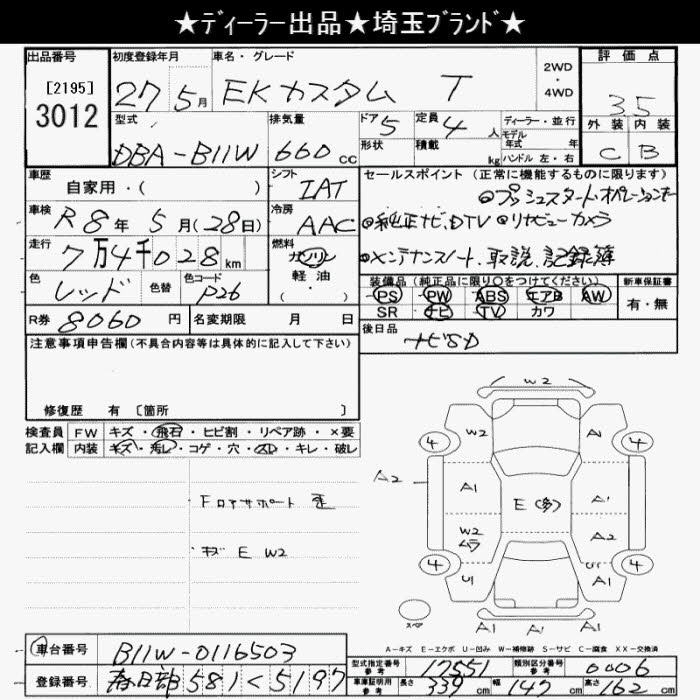 ★ディーラー出品★埼玉ブランド★
出品番号 初度登録年月 車名・グレード 評価点
[2195] 3012
27年 5月 EKカスタム T
2WD・4WD
3.5
型式 排気量 ドア 5 定員 4人 ディーラー・並行
モデル年式 年
外装 内装
DBA-B11W 660cc
形状 積載 kg ハンドル 左・右
C B
車歴 シフト セールスポイント(正常に機能するものに限ります)
自家用・( ) IAT
◎プッシュスタートオペレーションキー
車検 冷房
R8年 5月(28日) AAC
◎純正ナビ、DTV ◎リヤビューカメラ
走行 燃料
7万4千028km ガソリン
◎メンテナンスノート、取説、記録簿
軽油
( )
色 色替 色コード
レッド P26
装備品(純正品に限り○をつけてください) 新車保証書
PS PW ABS エアB AW 有・無
SR ナビ TV カワ
R券 8060円 名変期限 月 日
後日品 ナビSD
注意事項申告欄(不具合内容等は具体的に記入して下さい)
修復歴 有 〔箇所 〕
検査員 FW キズ・飛石・ヒビ割・リペア跡・×要
記入欄 内装 キズ・汚レ・コゲ・穴・スレ・キレ・破レ
Fロアサポート 歪
キズ E W2
W2
4 W2 A1 4
A2 A1 E(多) A1
W2 ムラ A2
4 U1 U1 A1 4
スペア A1 A1 A1
A-キズ E-エクボ U-凹み W-補修跡 S-サビ C-腐食 XX-交換済
車台番号 B11W-0116503
型式指定番号 参考 17551 類別区分番号 参考 0006
登録番号 春日部 581 く 5197
車庫証明用 参考 長さ 339cm 幅 147cm 高さ 162cm